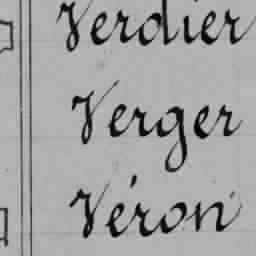 Verdier
Verger
Véron